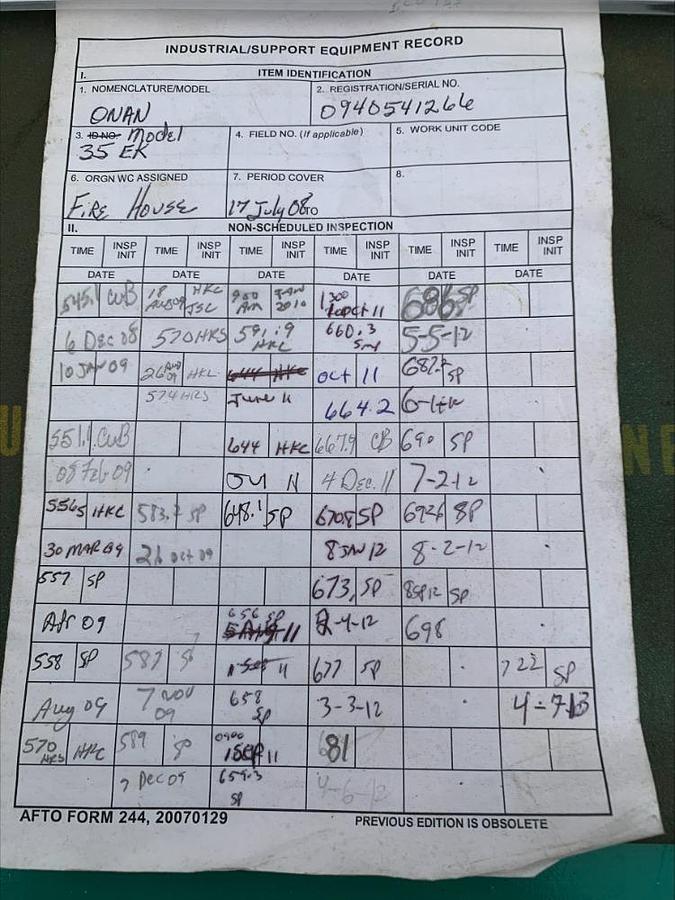 INDUSTRIAL/SUPPORT EQUIPMENT RECORD
I. ITEM IDENTIFICATION
1. NOMENCLATURE/MODEL 2. REGISTRATION/SERIAL NO.
ONAN 0940541266
3. ID NO. Model 4. FIELD NO. (If applicable) 5. WORK UNIT CODE
35 EK
6. ORGN WC ASSIGNED 7. PERIOD COVER 8.
FIRE HOUSE 17 July 08 TO
II. NON-SCHEDULED INSPECTION
TIME INSP INIT TIME INSP INIT TIME INSP INIT TIME INSP INIT TIME INSP INIT TIME INSP INIT
DATE DATE DATE DATE DATE DATE
545.1 CWB 18 AUG 09 HKC JSC 900 AM JAN 2010 1300 11 686 SP
6 Dec 08 570 HRS 591.9 HKC 660.3 5-5-12
10 JAN 09 26 AUG 09 HKC 644 HKC OCT 11 687.7 SP
574 HRS June 11 664.2
551.1 CWB 644 HKC 667.9 CB 690 SP
08 Feb 09 Jul 4 Dec. 11 7-2-12
556.5 HKC 583.7 SP 648.1 SP 670.8 SP 692.6 SP
30 MAR 09 21 Oct 09 8 JAN 12 8-2-12
557 SP 673 SP SP
Apr 09 656 SP 11 2-4-12 698
558 SP 587 S 1 Sep 11 677 SP 722 SP
Aug 09 7 NOV 09 658 SP 3-3-12 4-7-13
570 HRS HKC 589 SP 0900 1 SEP 11 681
7 Dec 09 659.3 SP 4-6-12
AFTO FORM 244, 20070129 PREVIOUS EDITION IS OBSOLETE